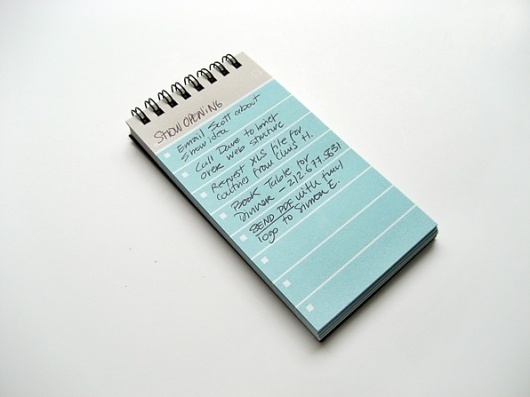 SHOW OPENING
Email Scott about
show idea
Call Dave to brief
over web structure
Request XLS file for
from Chris H.
Book Table for
Dinner – 212.677.5831
SEND PDF with final
logo to Simon E.